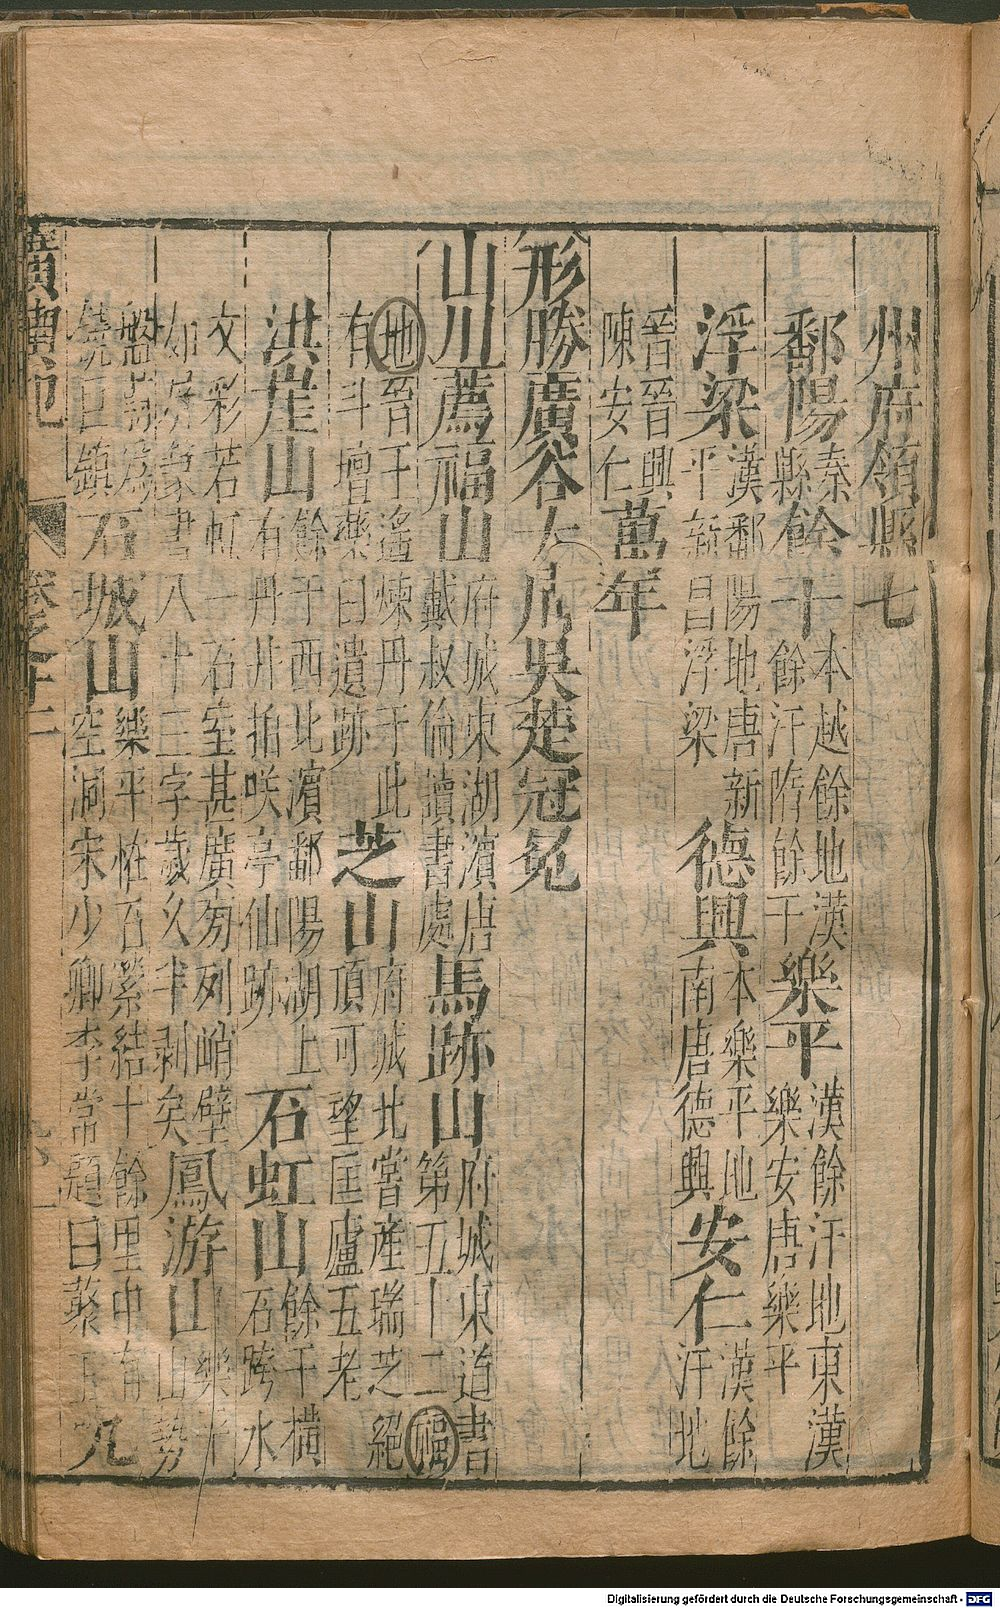 州府領縣七
鄱陽秦縣餘干本越餘地漢餘汗隋餘干樂平漢餘汗地東漢樂安唐樂平
浮梁漢鄱陽地唐新平新昌浮梁德興本樂平地南唐德興安仁漢餘汗地
晉晉興陳安仁萬年
形勝廣谷大川吳楚冠冕
山川薦福山府城東湖濱唐戴叔倫讀書處馬跡山府城東道書第五十二福
地晉王遙煉丹于此有斗壇藥臼遺跡芝山府城北嘗產瑞芝絕頂可望匡廬五老
洪崖山餘干西北濱鄱陽湖上有丹井拍咲亭仙跡石虹山餘干橫石跨水
文彩若虹一石室甚廣旁列峭壁如屏篆書八十三字歲久半剝矣鳳游山樂平山勢
饒巨鎮石城山樂平怪石縈結十餘里中有空洞宋少卿李常題曰
卷之十一
Digitalisierung gefördert durch die Deutsche Forschungsgemeinschaft - DFG